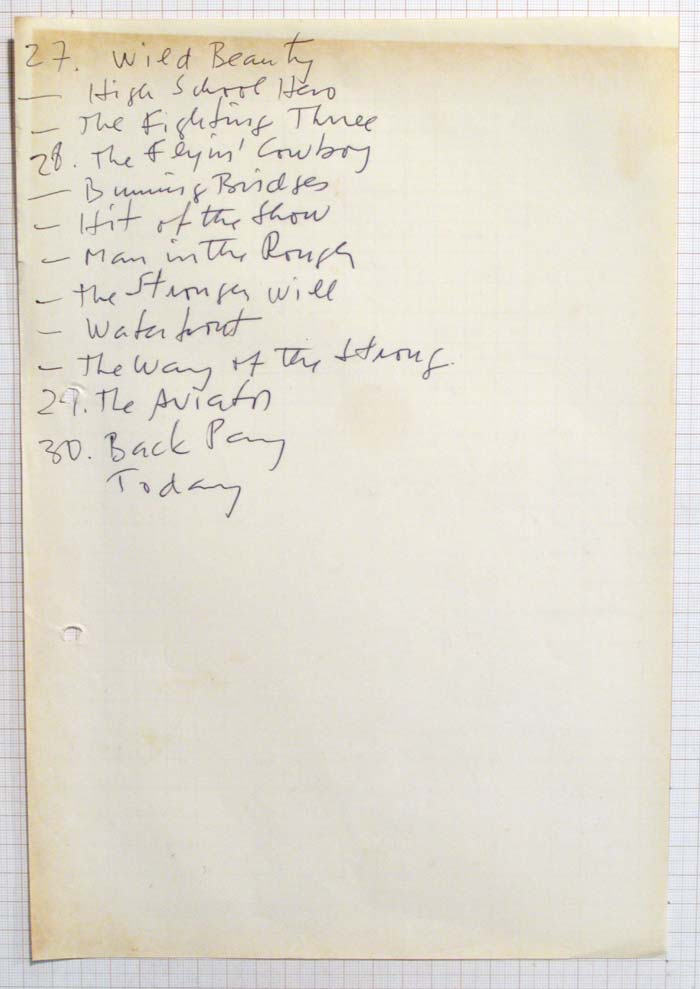 27. Wild Beauty
— High School Hero
— The Fighting Three
28. The Flyin' Cowboy
— Burning Bridges
— Hit of the Show
— Man in the Rough
— The Stronger Will
— Waterfront
— The Way of the Strong.
29. The Aviator
30. Back Pay
Today